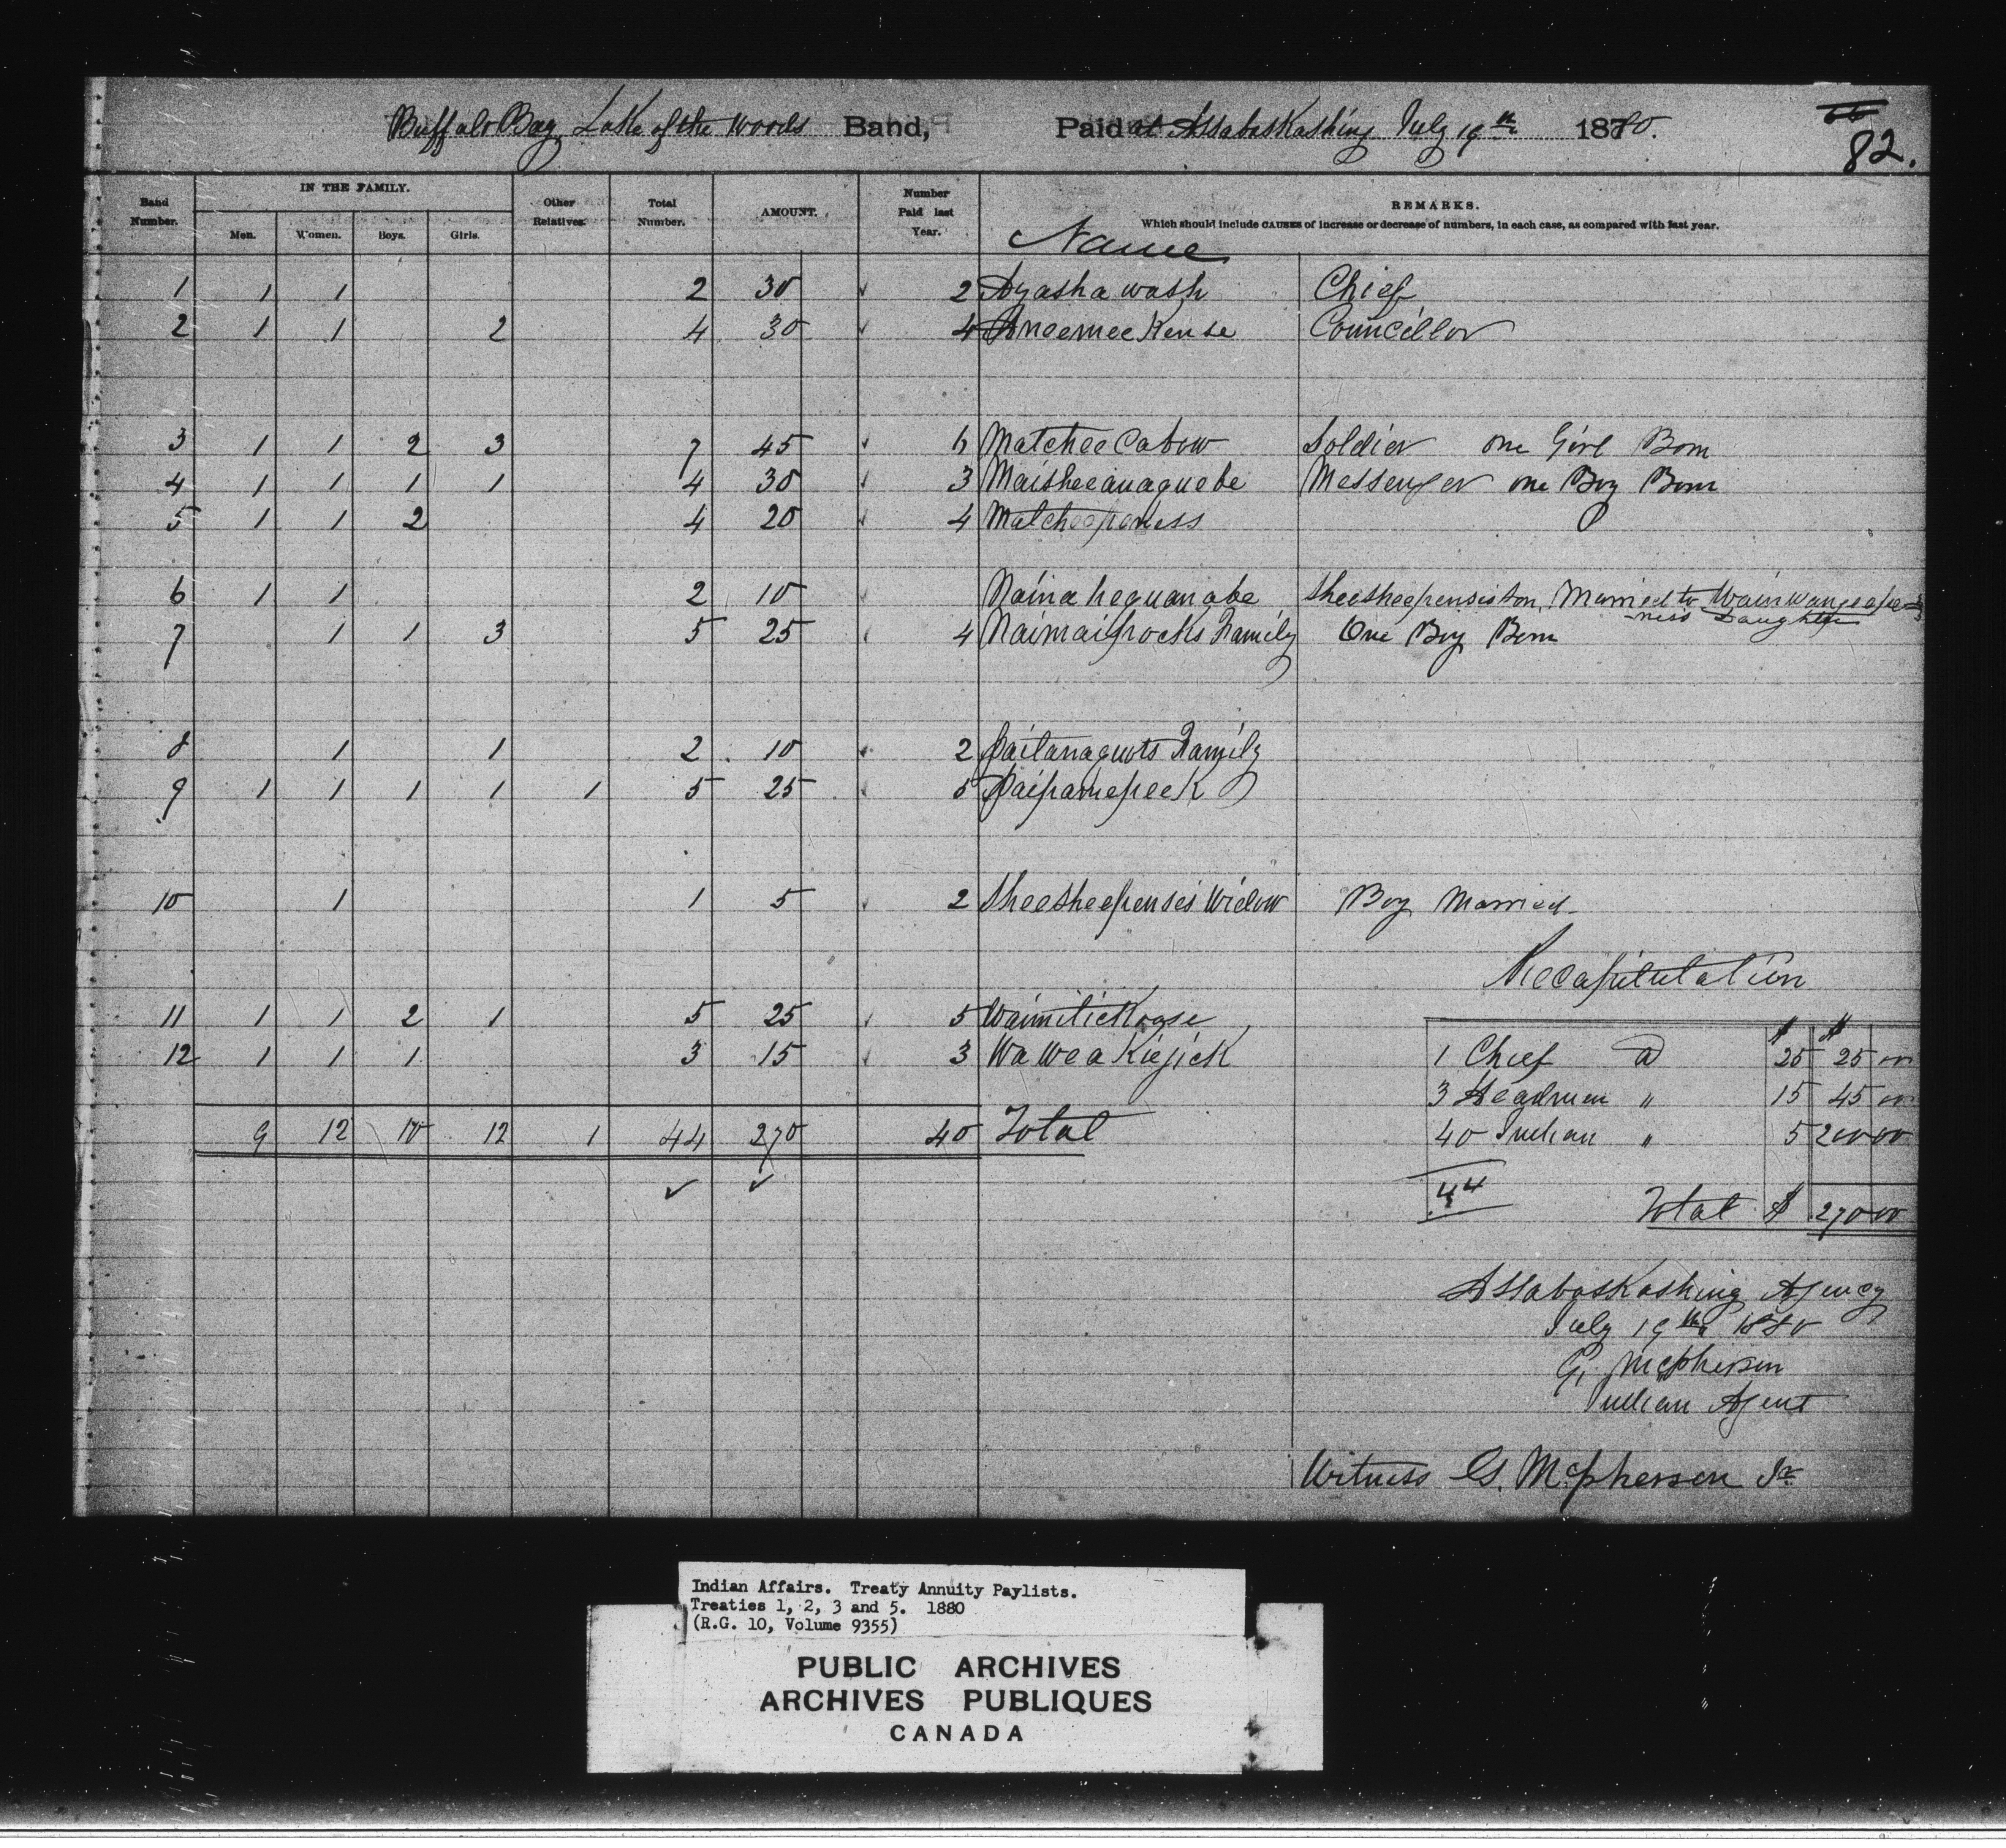 Buffalo Bay, Lake of the Woods Band, Paid at Assabaskashing July 19th 1880.
82.
Band Number. IN THE FAMILY. Men. Women. Boys. Girls. Other Relatives. Total Number. AMOUNT. Number Paid last Year. Name REMARKS.
Which should include CAUSES of increase or decrease of numbers, in each case, as compared with last year.
1 1 1 2 30 2 Ayashawash Chief
2 1 1 2 4 30 4 Aneemeekense Councillor
3 1 1 2 3 7 45 6 Matcheecabow Soldier one Girl Born
4 1 1 1 1 4 30 3 Maisheeanaquebe Messenger one Boy Born
5 1 1 2 4 20 4 Matcheepeness
6 1 1 2 10 Nainahequanabe Sheesheepensis son, Married to Wainwangeapeness Daughter
7 1 1 3 5 25 4 Naimaipocks Family One Boy Born
8 1 1 2 10 2 Paitanaquots Family
9 1 1 1 1 1 5 25 5 Paipamepeek
10 1 1 5 2 Sheesheepensis Widow Boy Married
Recapitulation
11 1 1 2 1 5 25 5 Waimitickoase
12 1 1 1 3 15 3 Waweakiejick
$ $
1 Chief @ 25 25 00
3 Headmen " 15 45 00
40 Indian " 5 200 00
44 Total $ 270 00
9 12 10 12 1 44 270 40 Total
Assabaskashing Agency
July 19th 1880
G. McPherson
Indian Agent
Witness G. McPherson Jr
Indian Affairs. Treaty Annuity Paylists.
Treaties 1, 2, 3 and 5. 1880
(R.G. 10, Volume 9355)
PUBLIC ARCHIVES
ARCHIVES PUBLIQUES
CANADA